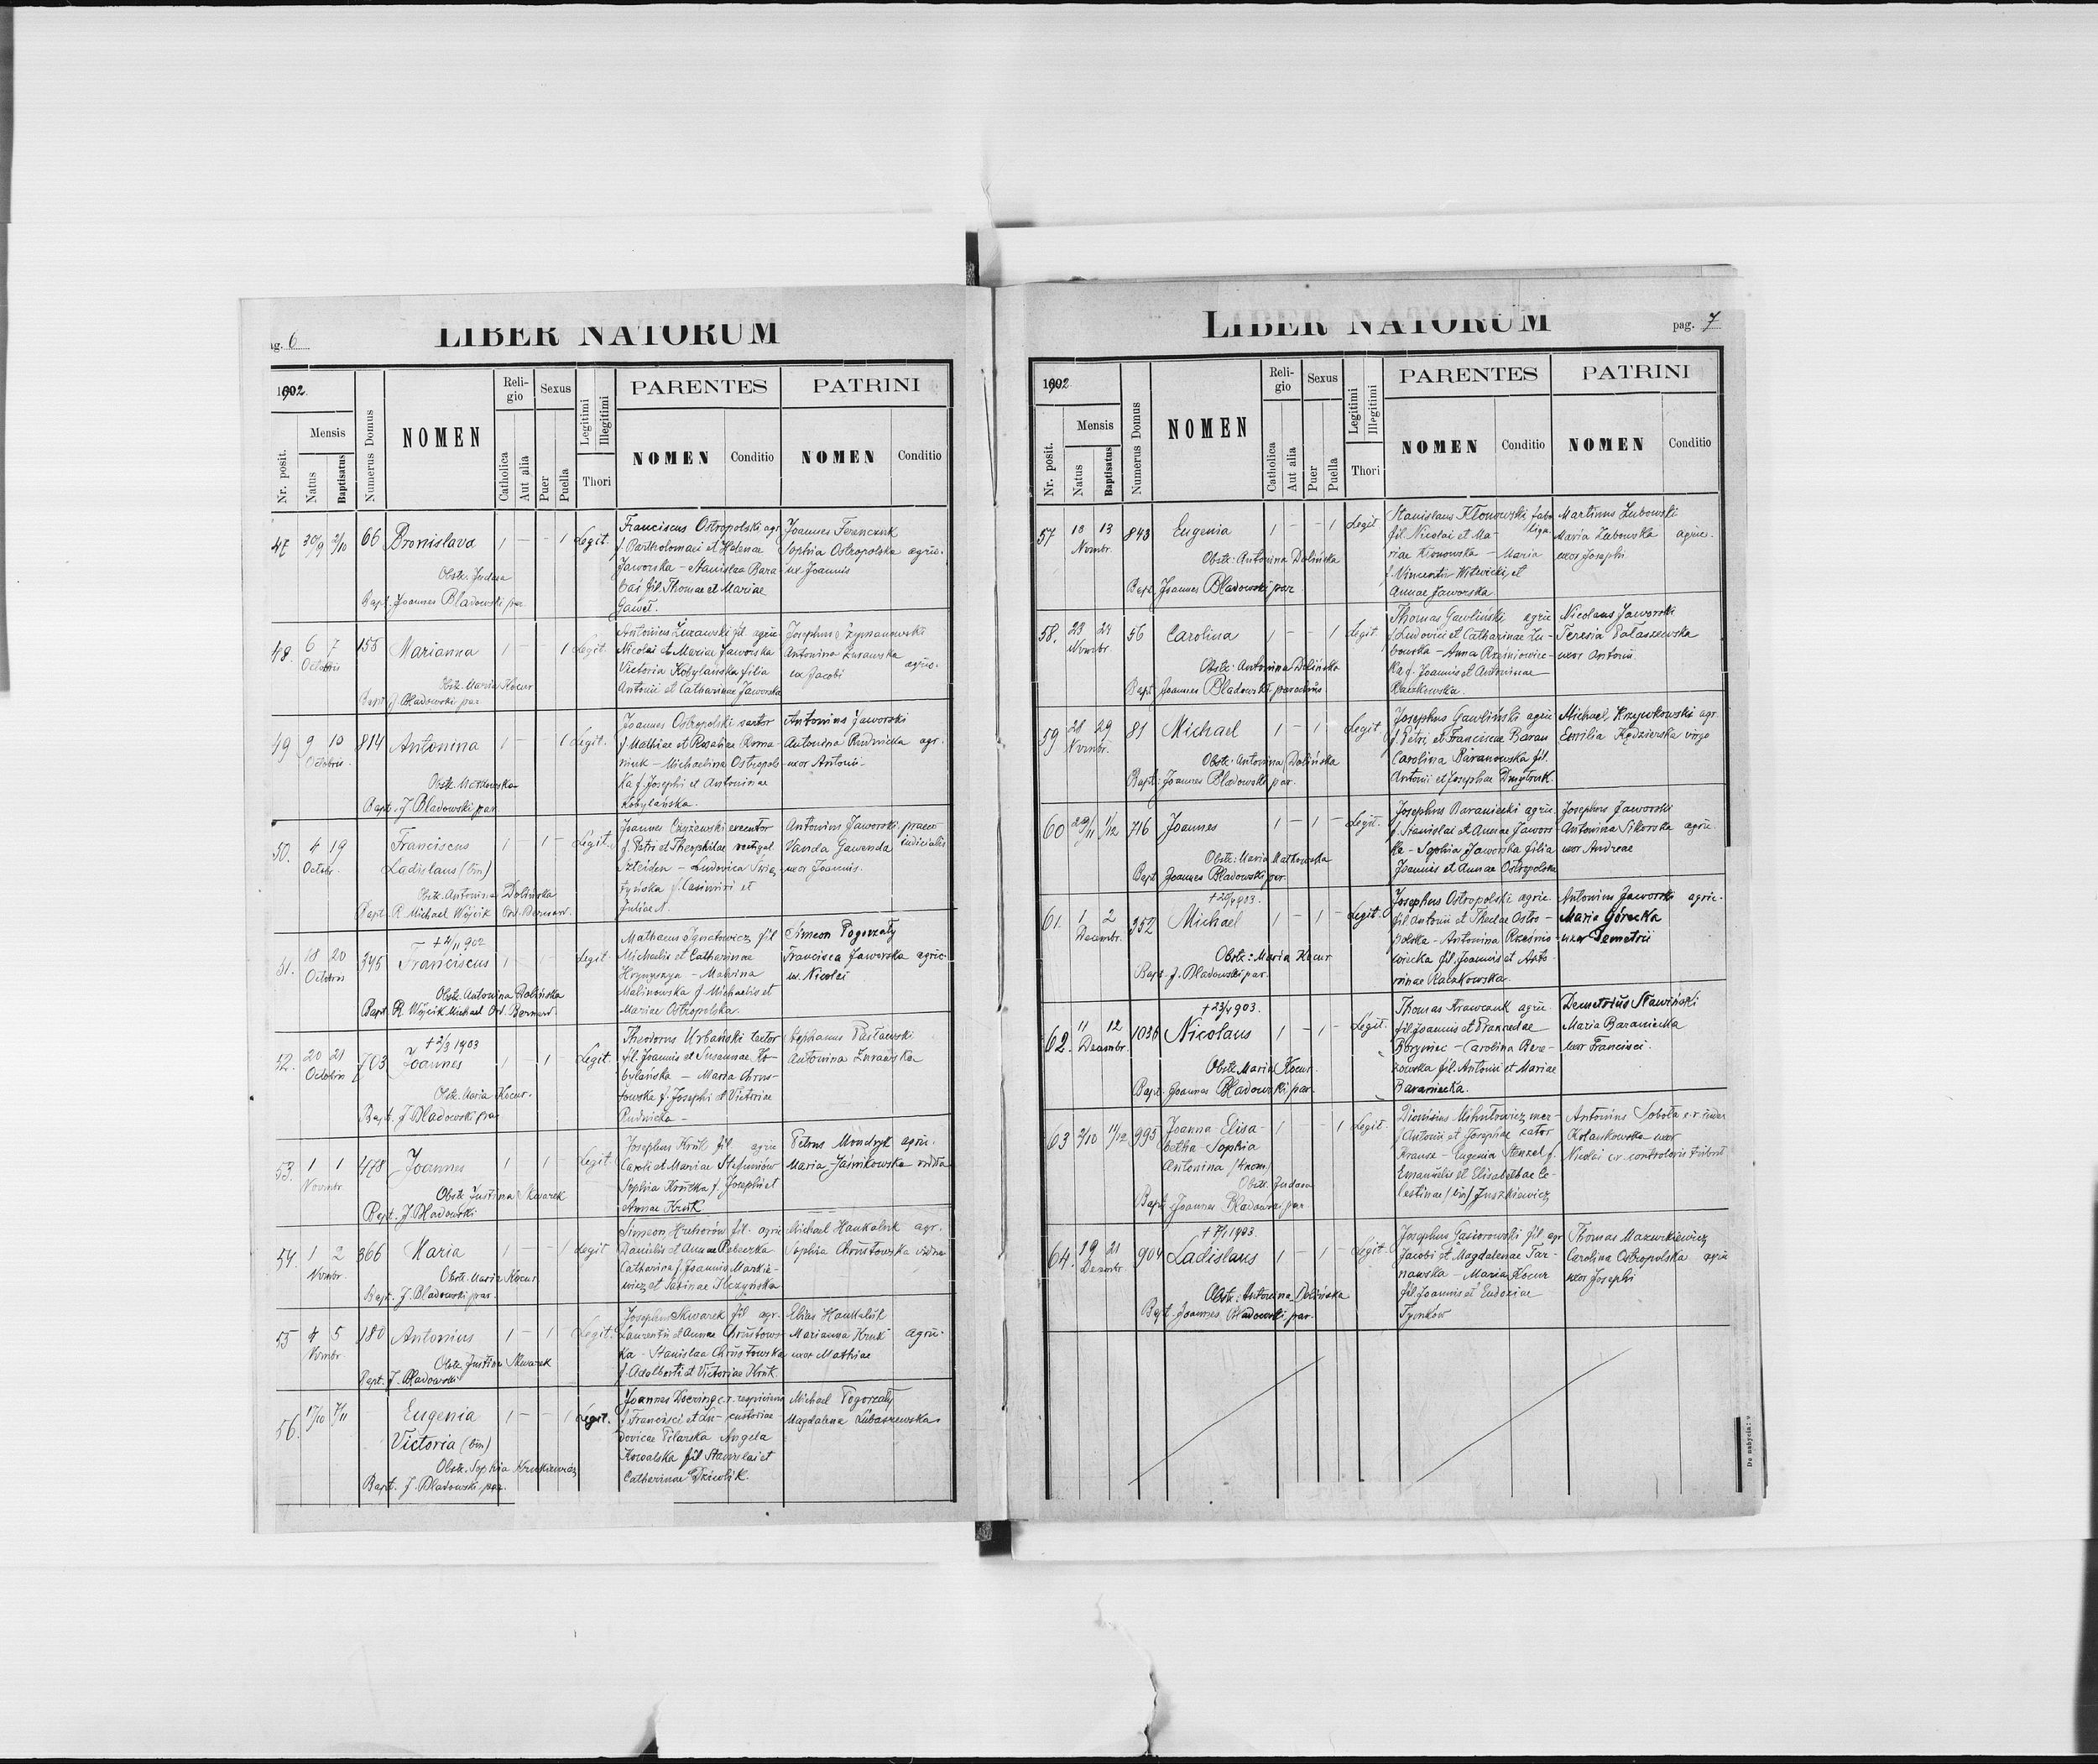 ag. 6
LIBER NATORUM
1902.
Nr. posit.
Mensis
Natus
Baptisatus
Numerus Domus
NOMEN
Religio
Catholica
Aut alia
Sexus
Puer
Puella
Legitimi
Illegitimi
Thori
PARENTES
NOMEN
Conditio
PATRINI
NOMEN
Conditio
47 30/9 2/10 66 Bronislava 1 – – 1 Legit.
Obstr. Judasa
Bapt. Joannes Bladowski par.
Franciscus Ostropolski agr.
f. Bartholomaei et Helenae
Jaworska – Stanislaa Bara
baś fil. Thomae et Mariae
Gaweł.
Joannes Ferenczuk
Sophia Ostropolska agric.
ux Joannis
48. 6 7 Octobris 155 Marianna 1 – – 1 Legit.
Obstr. Maria Kocur
Bapt. J. Bladowski par.
Antonius Żurawski fil. agric.
Nicolai et Mariae Jaworska
Victoria Kobylańska filia
Antonii et Catharinae Jaworska
Josephus Szymanowski
Antonina Żurawska agric.
ux Jacobi
49 9 10 Octobris 814 Antonina 1 – – 1 Legit.
Bapt. J. Bladowski par.
Joannes Ostropolski sartor
f. Mathiae et Rosaliae Roma
niuk – Michaelina Ostropols
ka f. Josephi et Antoninae
Kobylańska.
Antonius Jaworski
Antonina Rudnicka agr.
uxor Antonii
50. 4 19 Octobr. Franciscus 1 – 1 – Legit.
Ladislaus (bin)
Obstr. Antonina Dolińska
Bapt. R. Michael Wójcik Ord. Bernard.
Joannes executor
f. Petri et Theophilae
– Ludovica
f. Casimiri et
Juliae N.
Antonius Jaworski
Vanda Gawenda iudicialis
uxor Joannis.
51. 18 20 Octobris 345 Franciscus 1 – 1 – Legit.
+ 4/11 902
Obstr. Antonina Dolińska
Bapt. R. Wójcik Michael Ord. Bernard.
Mathaeus Ignatowicz fil
Michaelis et Catharinae
– Malvina
Malinowska f. Michaelis et
Mariae Ostropolska.
Simeon Pogorzały
Francisca Jaworska agric.
ux. Nicolai
52. 20 21 Octobris 703 Joannes 1 – 1 – Legit.
+ 2/3 1903
Obstr. Maria Kocur.
Bapt. J. Bladowski par.
Theodorus Urbański tector
fil. Joannis et Susannae Ko-
bylańska – Maria Chrus-
towska f. Josephi et Victoriae
Rudnicka –
Stephanus Pasławski
Antonina Żurawska
53. 1 1 Novmbr 478 Joannes 1 – 1 – Legit.
Obstr. Justina Skwarek
Bapt. J. Bladowski
Josephus Kruk fil. agric
Caroli et Mariae Stefuniów
Sophia Krucka f. Josephi et
Annae Kruk
Petrus Mondryk agric.
Maria Jaśnikowska vidua
54. 1 2 Novmbr. 366 Maria 1 – – 1 Legit
Obstr. Maria Kocur
Bapt. J. Bladowski par.
Simeon fil. agric
Danielis et Annae
Catharina f. Joannis Markie-
wicz et Sabinae Ilczyńska
Michael Haukaluk agr.
Sophia Chrustowska vidua
55 4 5 Novmbr. 180 Antonius 1 – 1 – Legit.
Obstr. Justina Skwarek
Bapt. J. Bladowski
Josephus Skwarek fil. agr.
Laurentii et Annae Chrustows
ka – Stanislaa Chrustowska
f. Adalberti et Victoriae Kruk.
Elias Haukaluk
Marianna Kruk agric.
uxor Mathiae
56. 17/10 7/11 Eugenia 1 – – 1 Legit.
Victoria (bin)
Obstr. Sophia Krukiewicz
Bapt. J. Bladowski par.
Joannes Doering c.r. respiciens
f. Francisci et Lu- custodiae
dovicae Pilarska Angela
Kowalska fil Stanislai et
Catharinae Dzicolik.
Michael Pogorzały
Magdalena Lubaszewska
LIBER NATORUM
pag. 7
1902
Nr. posit.
Mensis
Natus
Baptisatus
Numerus Domus
NOMEN
Religio
Catholica
Aut alia
Sexus
Puer
Puella
Legitimi
Illegitimi
Thori
PARENTES
NOMEN
Conditio
PATRINI
NOMEN
Conditio
57 10 13 Novmbr. 843 Eugenia 1 – – 1 Legit
Obstr: Antonina Dolińska
Bapt. Joannes Bladowski par
Stanislaus Klonowski faber
fil. Nicolai et Ma- lign.
riae Klonowska – Maria
f. Vincentii Witwicki et
Annae Jaworska
Martinus Zubowski
Maria Zubowska agric.
uxor Josephi
58. 23 24 Novmbr. 56 Carolina 1 – – 1 Legit.
Obstr: Antonina Dolińska
Bapt Joannes Bladowski parochus
Thomas Gawliński agric
f. Ludovici et Catharinae Zu-
bowska – Anna Rześniowiec-
ka f. Joannis et Antoninae
Raczkowska.
Nicolaus Jaworski
Teresia Pałaszewska
uxor Antonii
59 28 29 Novmbr. 81 Michael 1 – 1 – Legit.
Obstr: Antonina Dolińska
Bapt: Joannes Bladowski par.
Josephus Gawliński agric
f. Petri et Franciscae Baran
Carolina Baranowska fil.
Antonii et Josephae Dmytruk.
Michael Krzywkowski agr.
Emilia Kędzierska virgo
60 29/11 1/12 716 Joannes 1 – 1 – Legit.
Obstr: Maria Małkowska
Bapt Joannes Bladowski par.
Josephus Baraniecki agric.
f. Stanislai et Annae Jawors-
ka – Sophia Jaworska filia
Joannis et Annae Ostropolska
Josephus Jaworski
Antonina Sikorska agric.
uxor Andreae
61. 1 2 Decembr. 352 Michael 1 – 1 – Legit.
Obstr: Maria Kocur
Bapt. J. Bladowski par.
Josephus Ostropolski agric.
fil Antonii et Theclae Ostro-
polska – Antonina Rześnio-
wiecka fil. Joannis et Anto-
ninae Raczkowska.
Antonius Jaworski agric.
Maria Górecka
uxor Demetrii
62. 11 12 Decembr. 1036 Nicolaus 1 – 1 – Legit.
+ 23/4 903.
Obstr Maria Kocur.
Bapt. Joannes Bladowski par.
Thomas Krawczuk agric.
fil. Joannis et Franciscae
Boryniec – Carolina Bere-
zowska fil. Antonii et Mariae
Baraniecka.
Demetrius Sławiński
Maria Baraniecka
uxor Francisci.
63 2/10 11/12 995 Joanna Elisa- 1 – – 1 Legit.
betha Sophia
Antonina (4 nom)
Obstr. Judasa
Bapt. Joannes Bladowski par
Dionisius Michałowicz mer-
f. Antonii et Josephae cator
Krause – Eugenia Stenzel f.
Emanuelis et Elisabethae Ce-
lestinae (bin) Juszkiewicz
Antonius Sobota
Kolankowska uxor
Nicolai c.r. controloris
64. 19 21 Decembr 904 Ladislaus 1 – 1 – Legit.
+ 7/1 1903.
Obstr: Antonina Dolińska
Bapt. Joannes Bladowski par.
Josephus Gąsiorowski fil. agr
Jacobi et Magdalenae Tar-
nawska – Maria Kocur
fil Joannis et Eudoxiae
Tymków
Thomas Mazurkiewicz
Carolina Ostropolska agric
uxor Josephi
Do nabycia: w